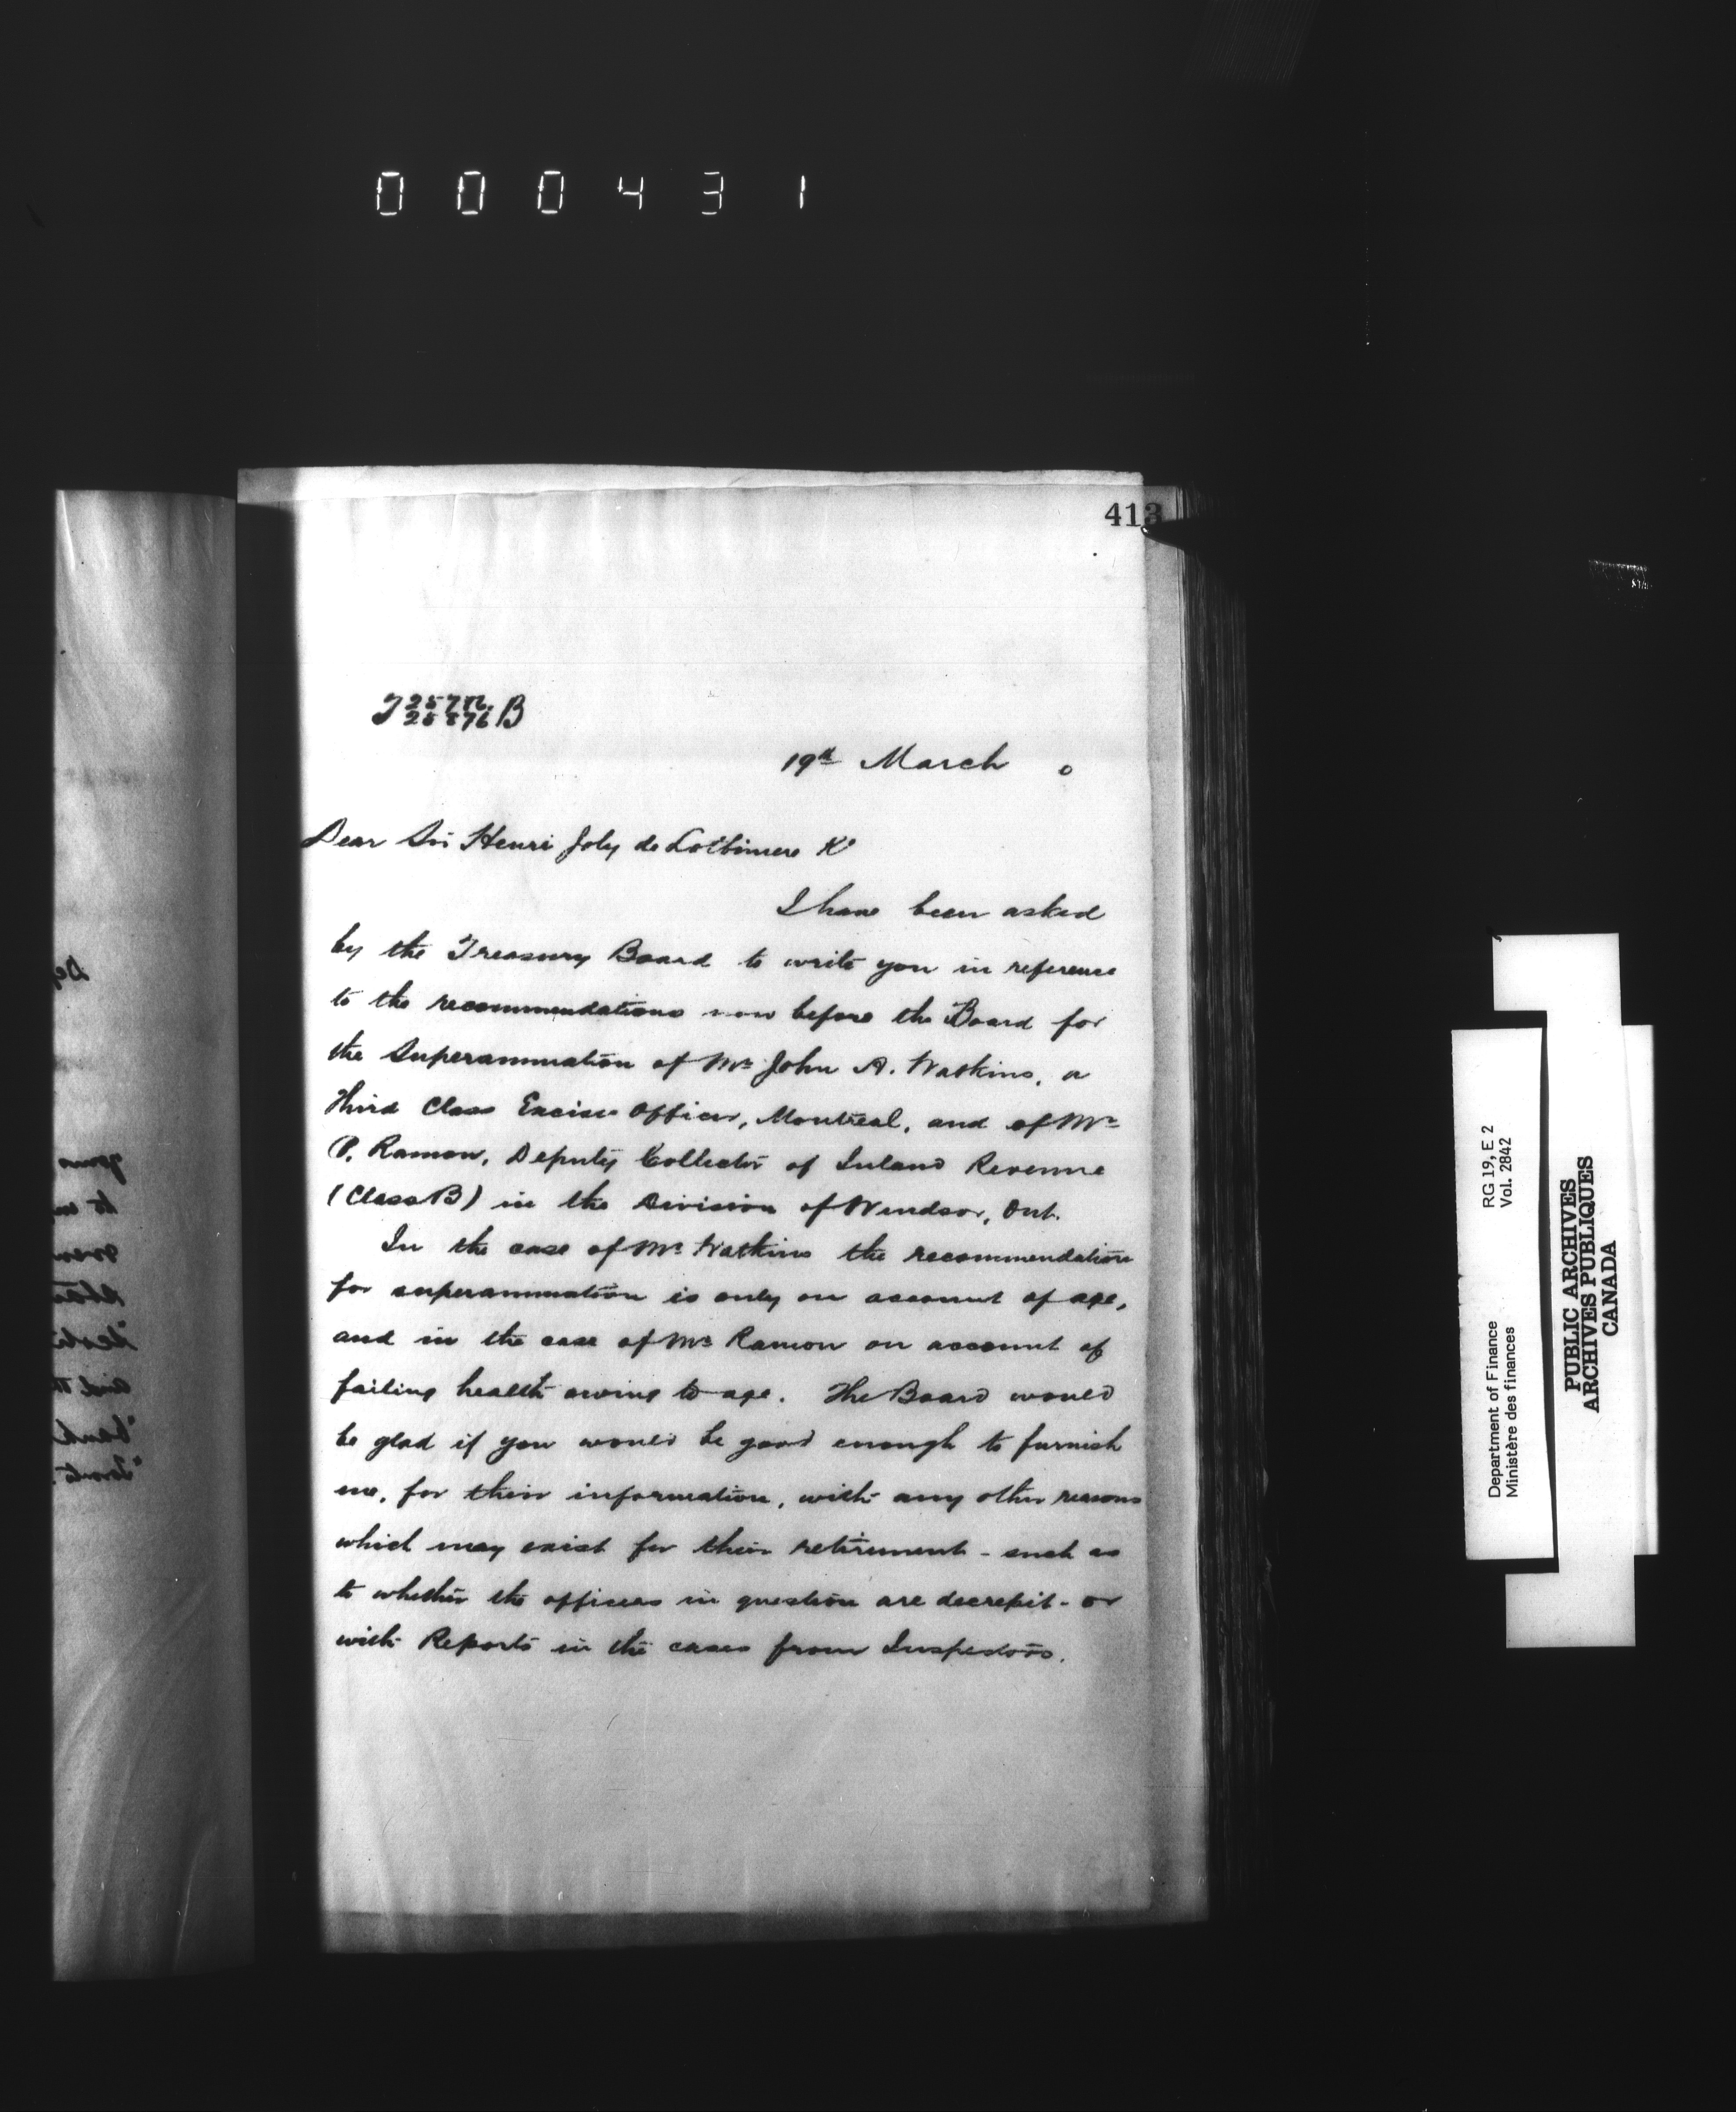 000431
413
19th March 0
Dear Sir Henri Joly de Lotbiniere K'
I have been asked
by the Treasury Board to write you in reference
to the recommendations now before the Board for
the Superannuation of Mr John A. Watkins, a
Third Class Excise Officer, Montreal, and of Mr
P. Ramon, Deputy Collector of Inland Revenue
(Class B) in the Division of Windsor, Ont.
In the case of Mr Watkins the recommendation
for superannuation is only on account of age,
and in the case of Mr Ramon on account of
failing health owing to age. The Board would
be glad if you would be good enough to furnish
me, for their information, with any other reasons
which may exist for their retirement - such as
to whether the officers in question are decrepit - or
with Reports in the cases from Inspectors.
Department of Finance RG 19, E 2
Ministère des finances Vol. 2842
PUBLIC ARCHIVES
ARCHIVES PUBLIQUES
CANADA